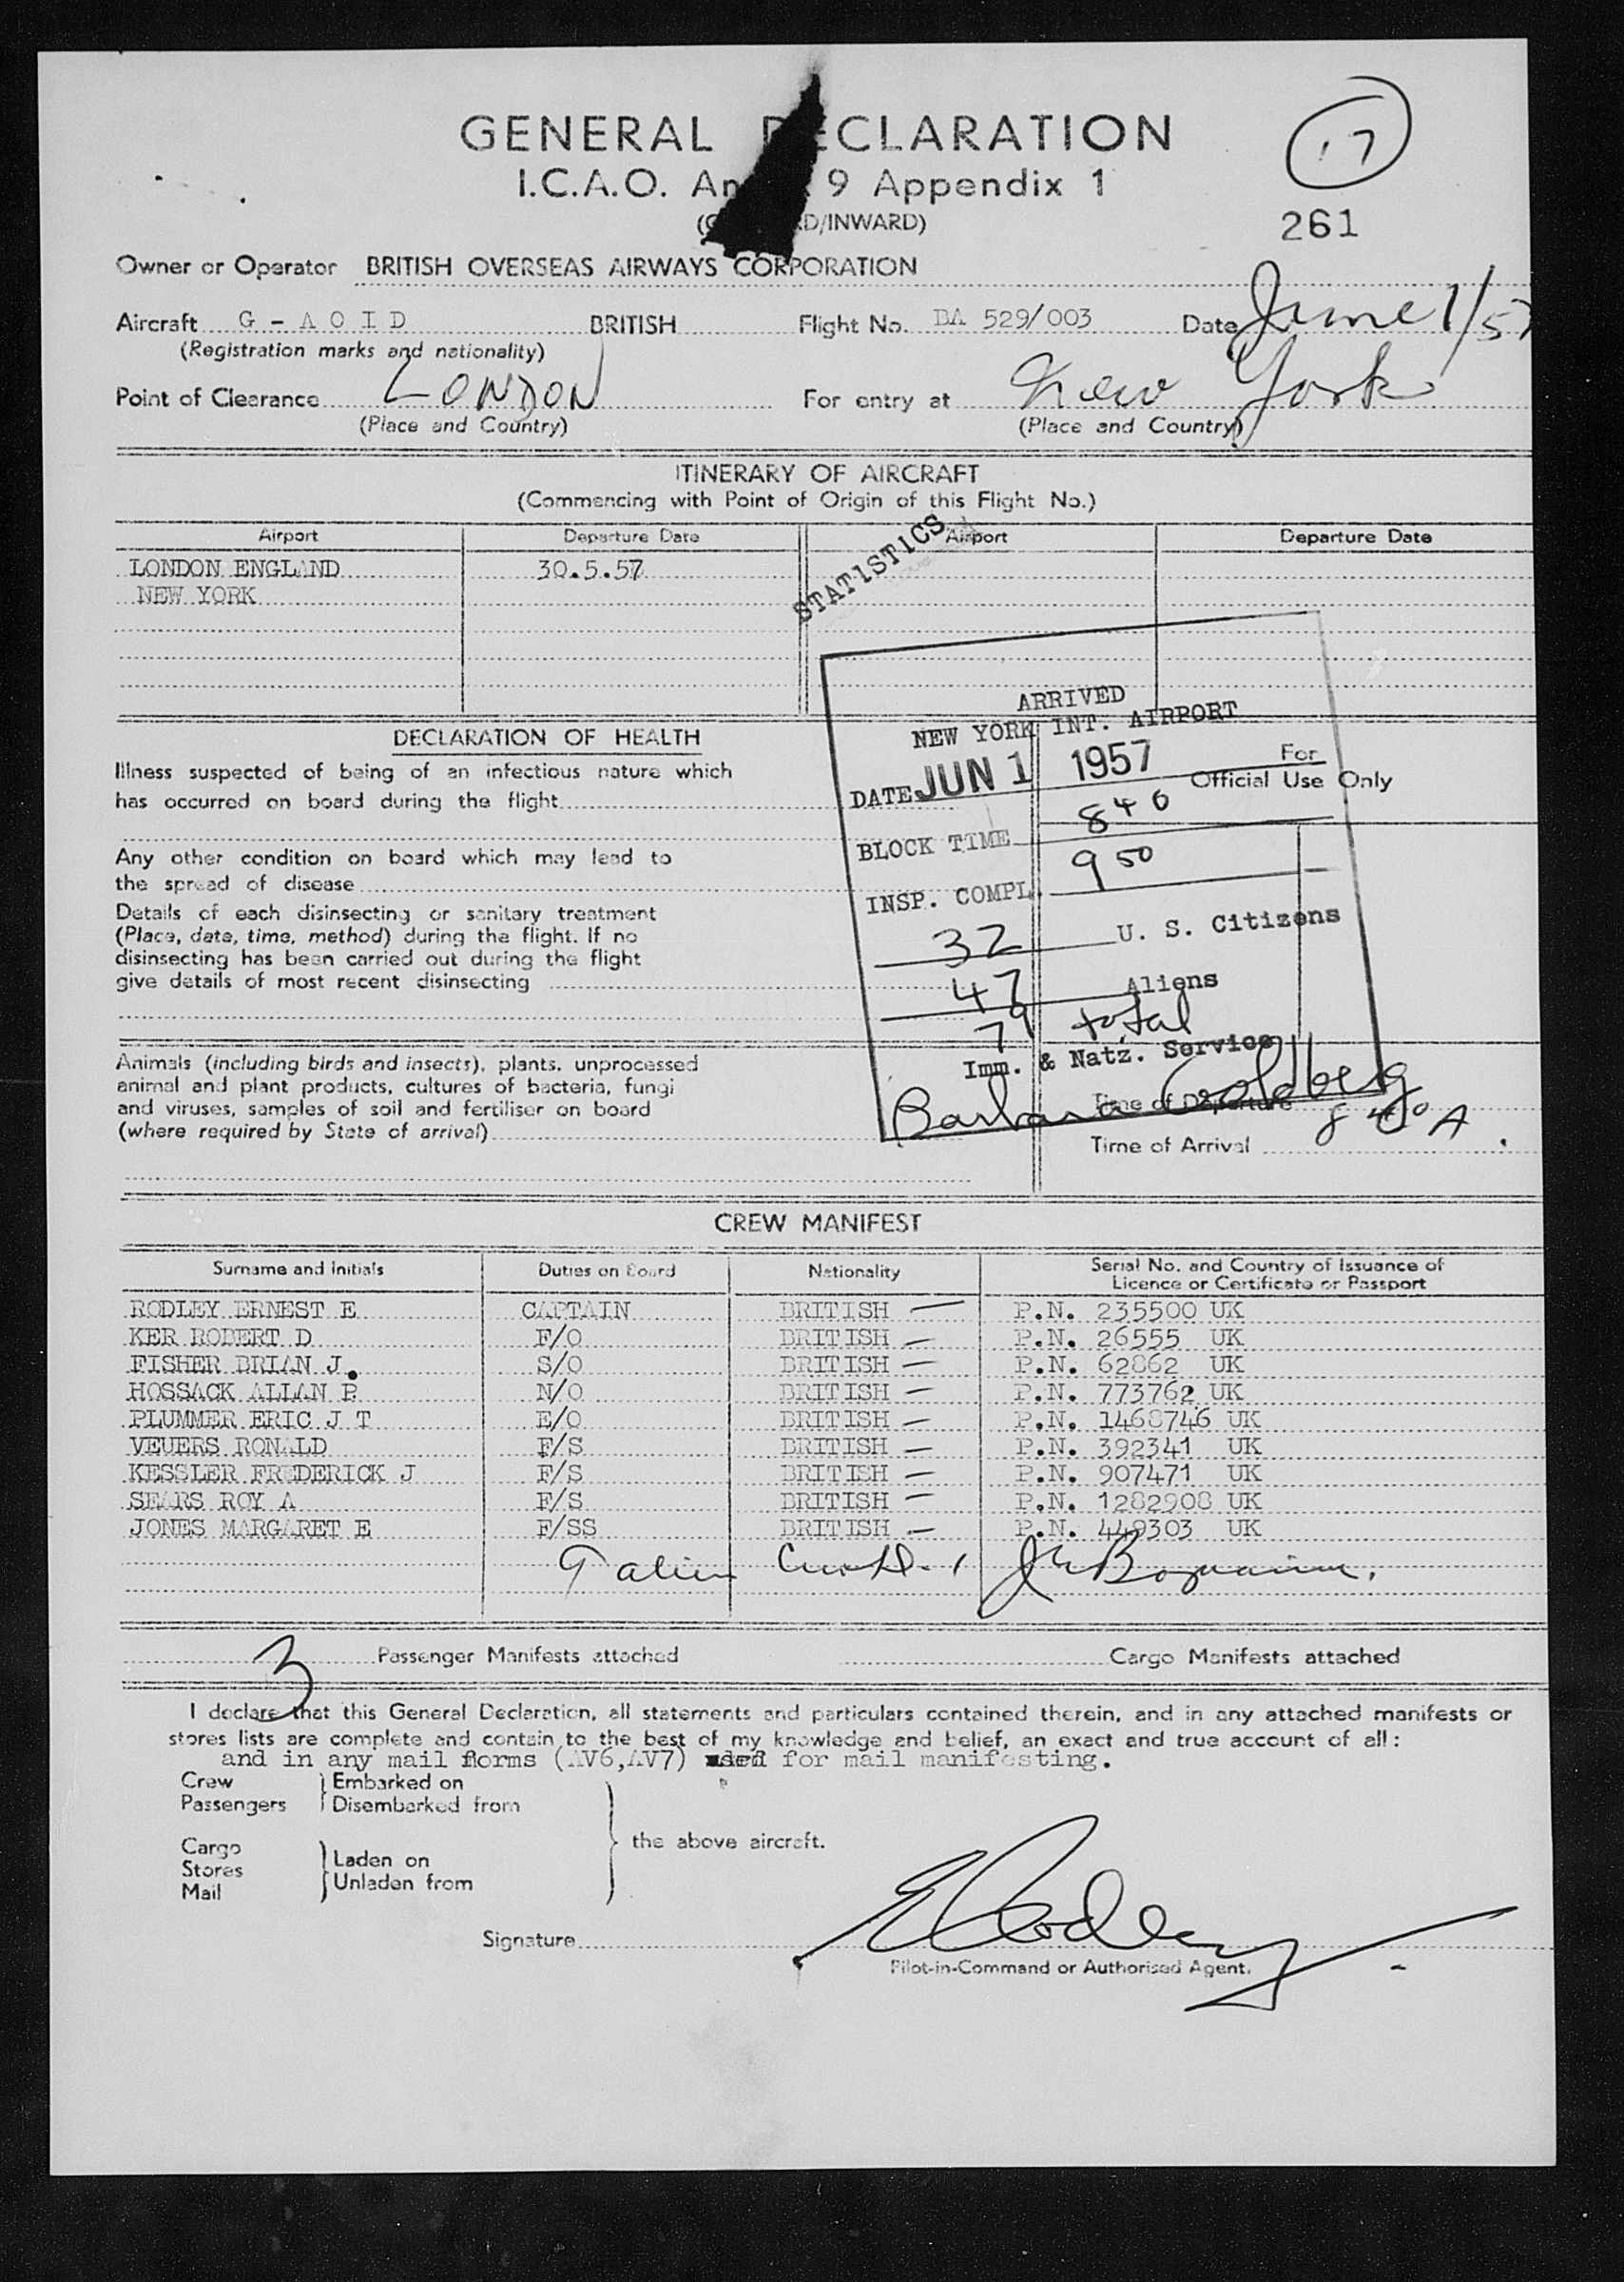 GENERAL DECLARATION
17
I.C.A.O. Annex 9 Appendix 1
D/INWARD)
261
Owner or Operator BRITISH OVERSEAS AIRWAYS CORPORATION
Aircraft G - A O I D BRITISH Flight No. BA 529/003 Date June 1/57
(Registration marks and nationality)
Point of Clearance LONDON For entry at New York
(Place and Country) (Place and Country)
ITINERARY OF AIRCRAFT
(Commencing with Point of Origin of this Flight No.)
STATISTICS
Airport Departure Date Airport Departure Date
LONDON ENGLAND 30.5.57
NEW YORK
ARRIVED
NEW YORK INT. AIRPORT
DATE JUN 1 1957
BLOCK TIME 840
INSP. COMPL. 950
32 U. S. Citizens
47 Aliens
79 total
Imm. & Natz. Service
Barbara Goldberg
For
Official Use Only
DECLARATION OF HEALTH
Illness suspected of being of an infectious nature which
has occurred on board during the flight
Any other condition on board which may lead to
the spread of disease
Details of each disinsecting or sanitary treatment
(Place, date, time, method) during the flight. If no
disinsecting has been carried out during the flight
give details of most recent disinsecting
Animals (including birds and insects), plants, unprocessed
animal and plant products, cultures of bacteria, fungi
and viruses, samples of soil and fertiliser on board
(where required by State of arrival)
Time of Departure
Time of Arrival 840 A
CREW MANIFEST
Surname and Initials Duties on Board Nationality Serial No. and Country of Issuance of
Licence or Certificate or Passport
RODLEY ERNEST E CAPTAIN BRITISH P.N. 235500 UK
KER ROBERT D F/O BRITISH P.N. 26555 UK
FISHER BRIAN J. S/O BRITISH P.N. 62862 UK
HOSSACK ALLAN P. N/O BRITISH P.N. 773762 UK
PLUMMER ERIC J T E/O BRITISH P.N. 1468746 UK
VEUERS RONALD F/S BRITISH P.N. 392341 UK
KESSLER FREDERICK J F/S BRITISH P.N. 907471 UK
SEARS ROY A F/S BRITISH P.N. 1282908 UK
JONES MARGARET E F/SS BRITISH P.N. 449303 UK
9 alien
3 Passenger Manifests attached Cargo Manifests attached
I declare that this General Declaration, all statements and particulars contained therein, and in any attached manifests or
stores lists are complete and contain to the best of my knowledge and belief, an exact and true account of all:
and in any mail florms (AV6,AV7) used for mail manifesting.
Crew } Embarked on
Passengers } Disembarked from
the above aircraft.
Cargo
Stores } Laden on
Mail } Unladen from
Signature E Rodley
Pilot-in-Command or Authorised Agent.